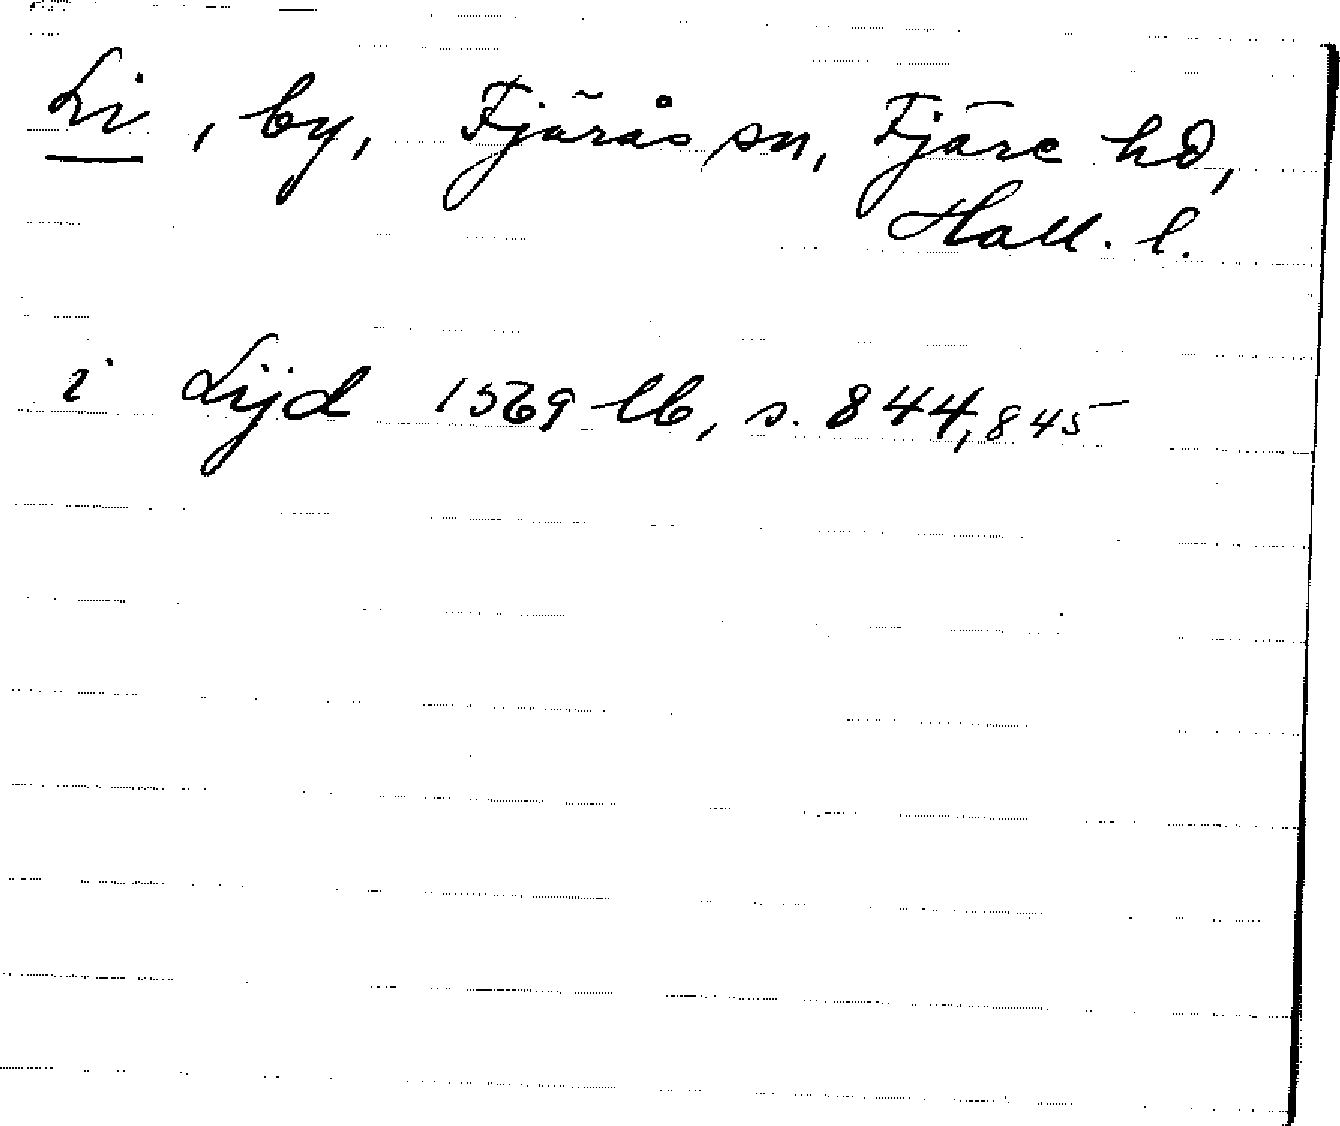 Li, by, Fjärås sn, Fjäre hd,
Hall. l.
i Lijd 1569 lb, s. 844, 845